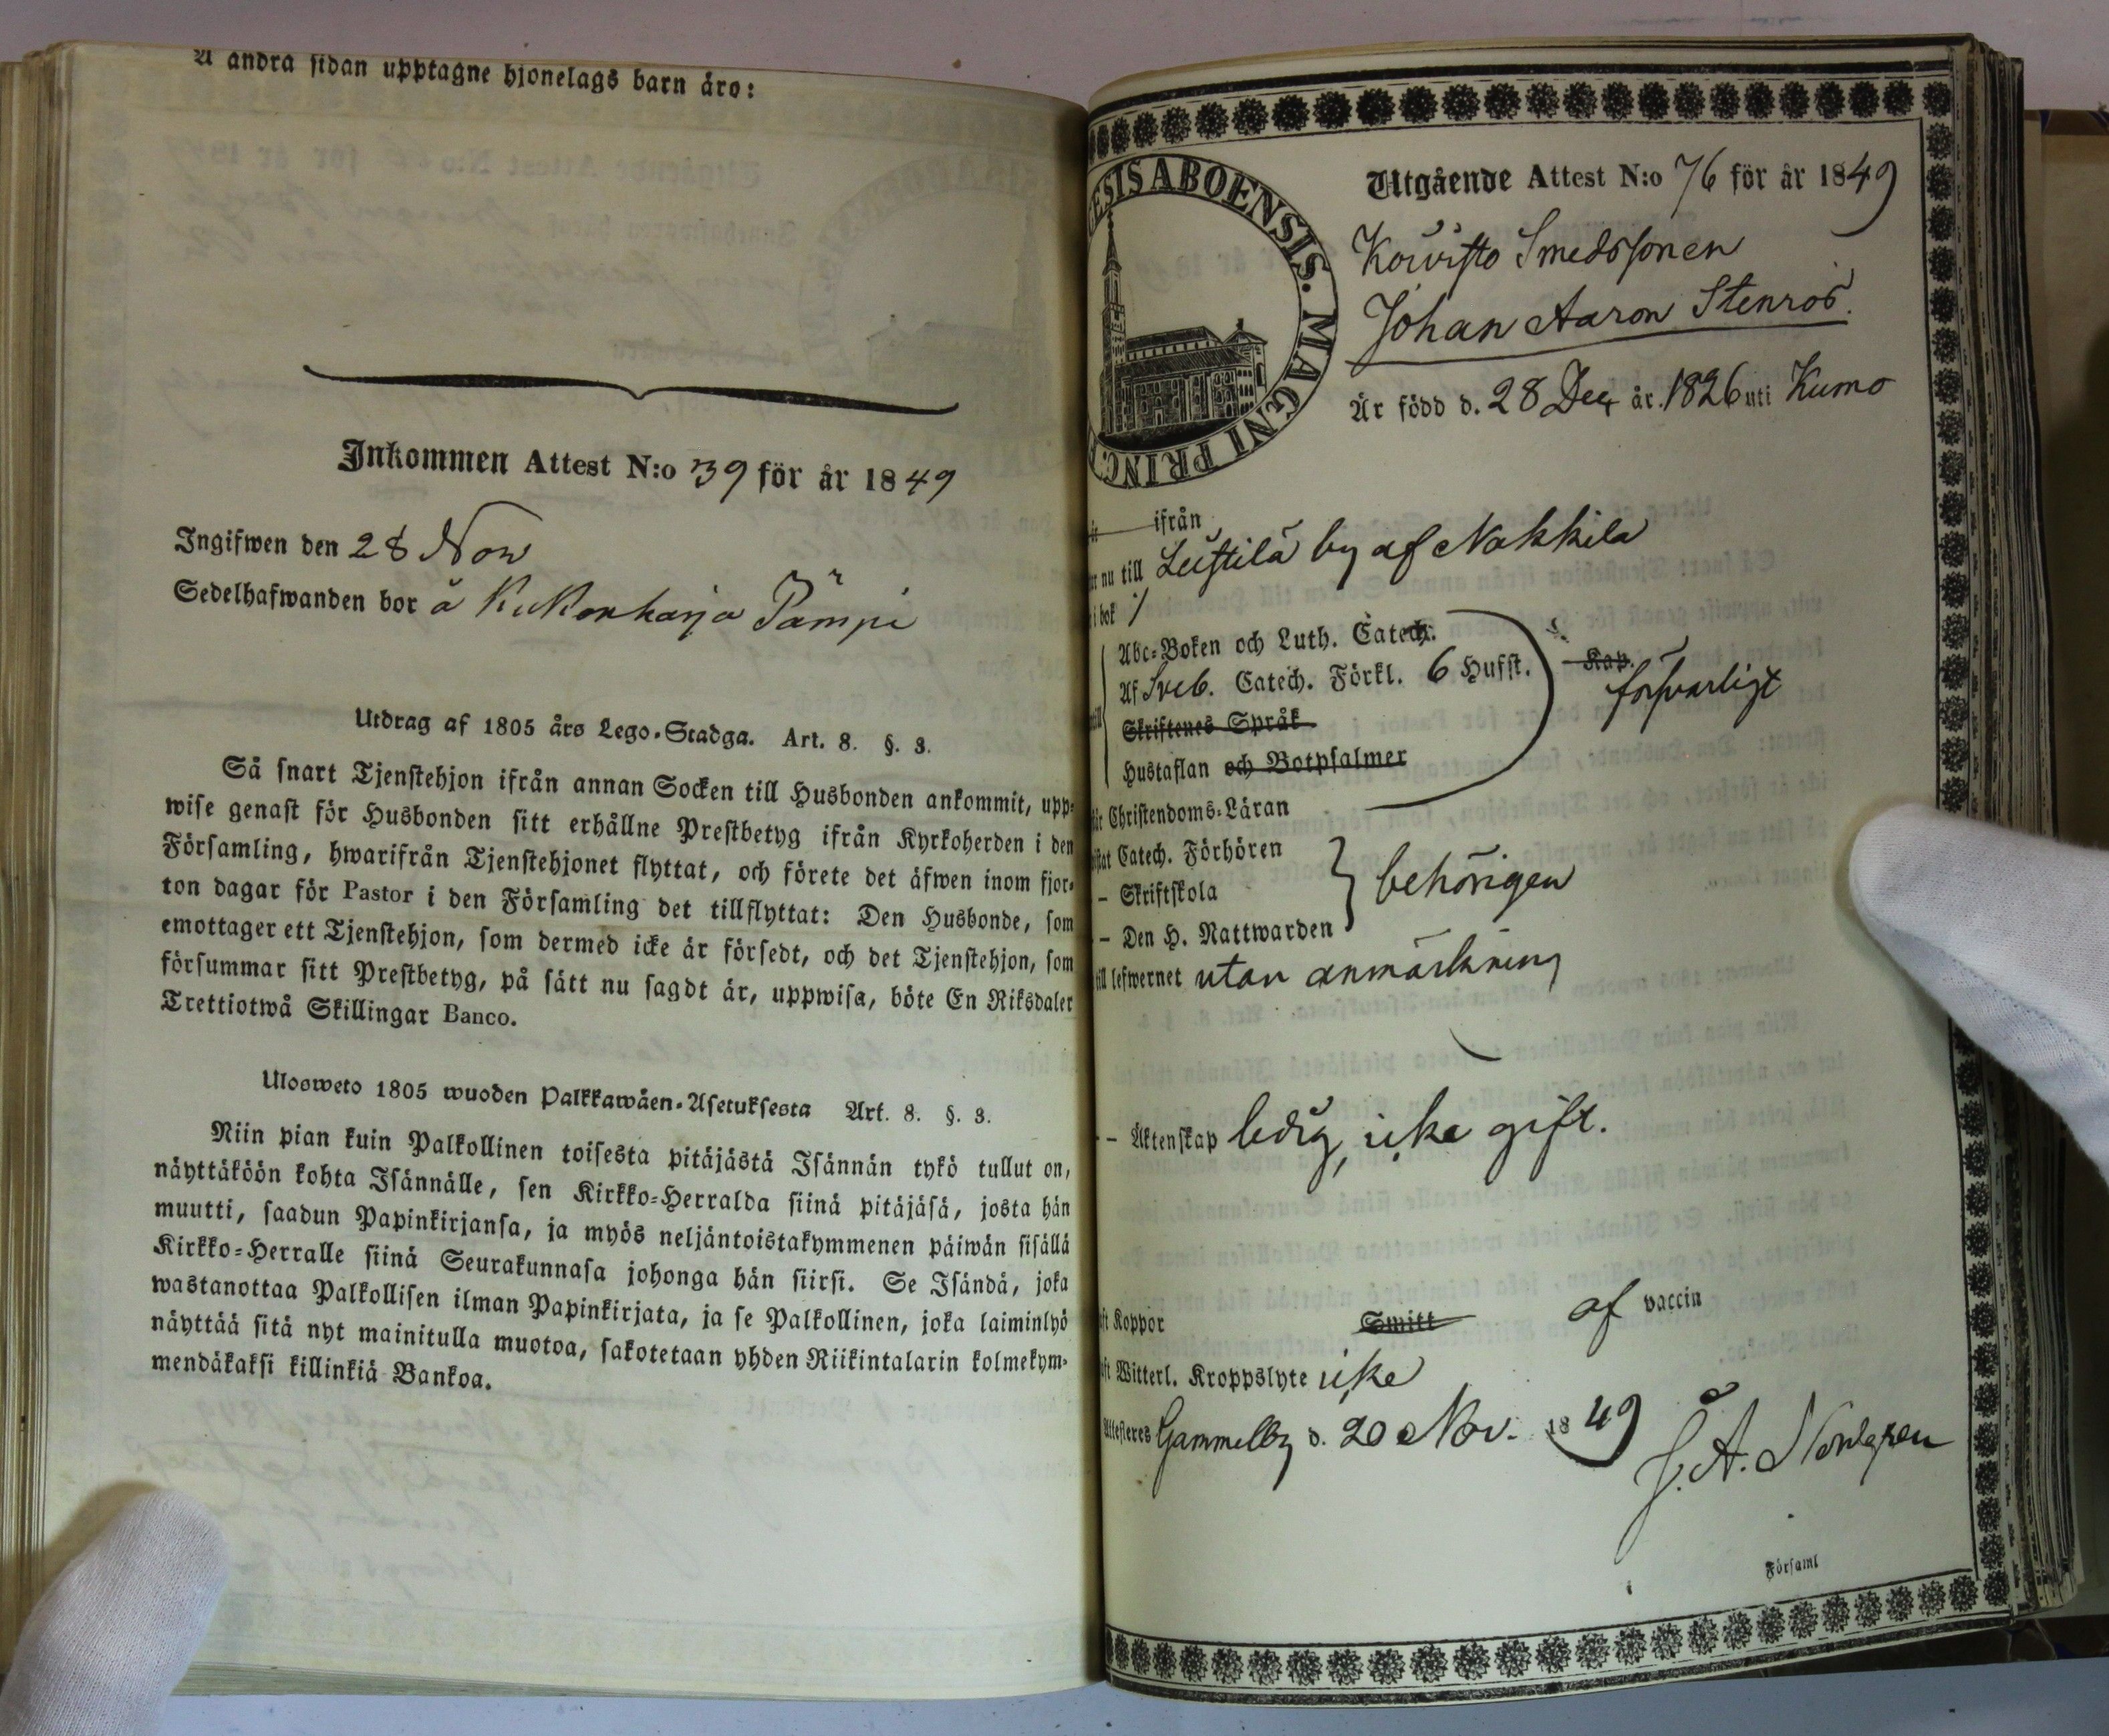 A andra sidan upptagne hjonelags barn äro:
Inkommen Attest N:o 39 för år 1849
Ingifwen den 28 Nov
Sedelhafwanden bor å Kukonharja Pämpi
Utdrag af 1805 års Lego-Stadga. Art. 8. §. 3.
Så snart Tjenstehjon ifrån annan Socken till Husbonden ankommit, upp-
wise genast för Husbonden sitt erhållne Prestbetyg ifrån Kyrkoherden i den
Församling, hwarifrån Tjenstehjonet flyttat, och förete det äfwen inom fjor-
ton dagar för Pastor i den Församling det tillflyttat: Den Husbonde, som
emottager ett Tjenstehjon, som dermed icke är försedt, och det Tjenstehjon, som
försummar sitt Prestbetyg, på sätt nu sagdt är, uppwisa, böte En Riksdaler
Trettiotwå Skillingar Banco.
Ulosweto 1805 wuoden Palkkawäen-Asetuksesta Art. 8. §. 3.
Niin pian kuin Palkollinen toisesta pitäjästä Isännän tykö tullut on,
näyttäköön kohta Isännälle, sen Kirkko-Herralda siinä pitäjäsä, josta hän
muutti, saadun Papinkirjansa, ja myös neljäntoistakymmenen päiwän sisällä
Kirkko-Herralle siinä Seurakunnasa johonga hän siirsi. Se Isändä, joka
wastanottaa Palkollisen ilman Papinkirjata, ja se Palkollinen, joka laiminlyö
näyttää sitä nyt mainitulla muotoa, sakotetaan yhden Riikintalarin kolmekym-
mendäkaksi killinkiä Bankoa.
ESIS ABOENSIS. MAGNI PRINC
Utgående Attest N:o 76 för år 1849
Koivisto Smedssonen
Johan Aaron Stenros.
Är född d. 28 Dec. år 1826 uti Kumo
ifrån
nu till Leistilä by af Nakkila
i bok 1
Abc-Boken och Luth. Catech.
Af Sveb. Catech. Förkl. 6 Hufst. Kap. försvarligt
Skriftenes Språk
Hustaflan och Botpsalmer
Christendoms-Läran
Catech. Förhören
- Skriftskola behörigen
- Den H. Nattwarden
till lefwernet utan anmärkning
- Äktenskap ledig, icke gift.
Koppor Smitt af vaccin
Witterl. Kroppslyte icke
Attesteras Gammelby d. 20 Nov. 1849
J. A. Nordgren
Församl